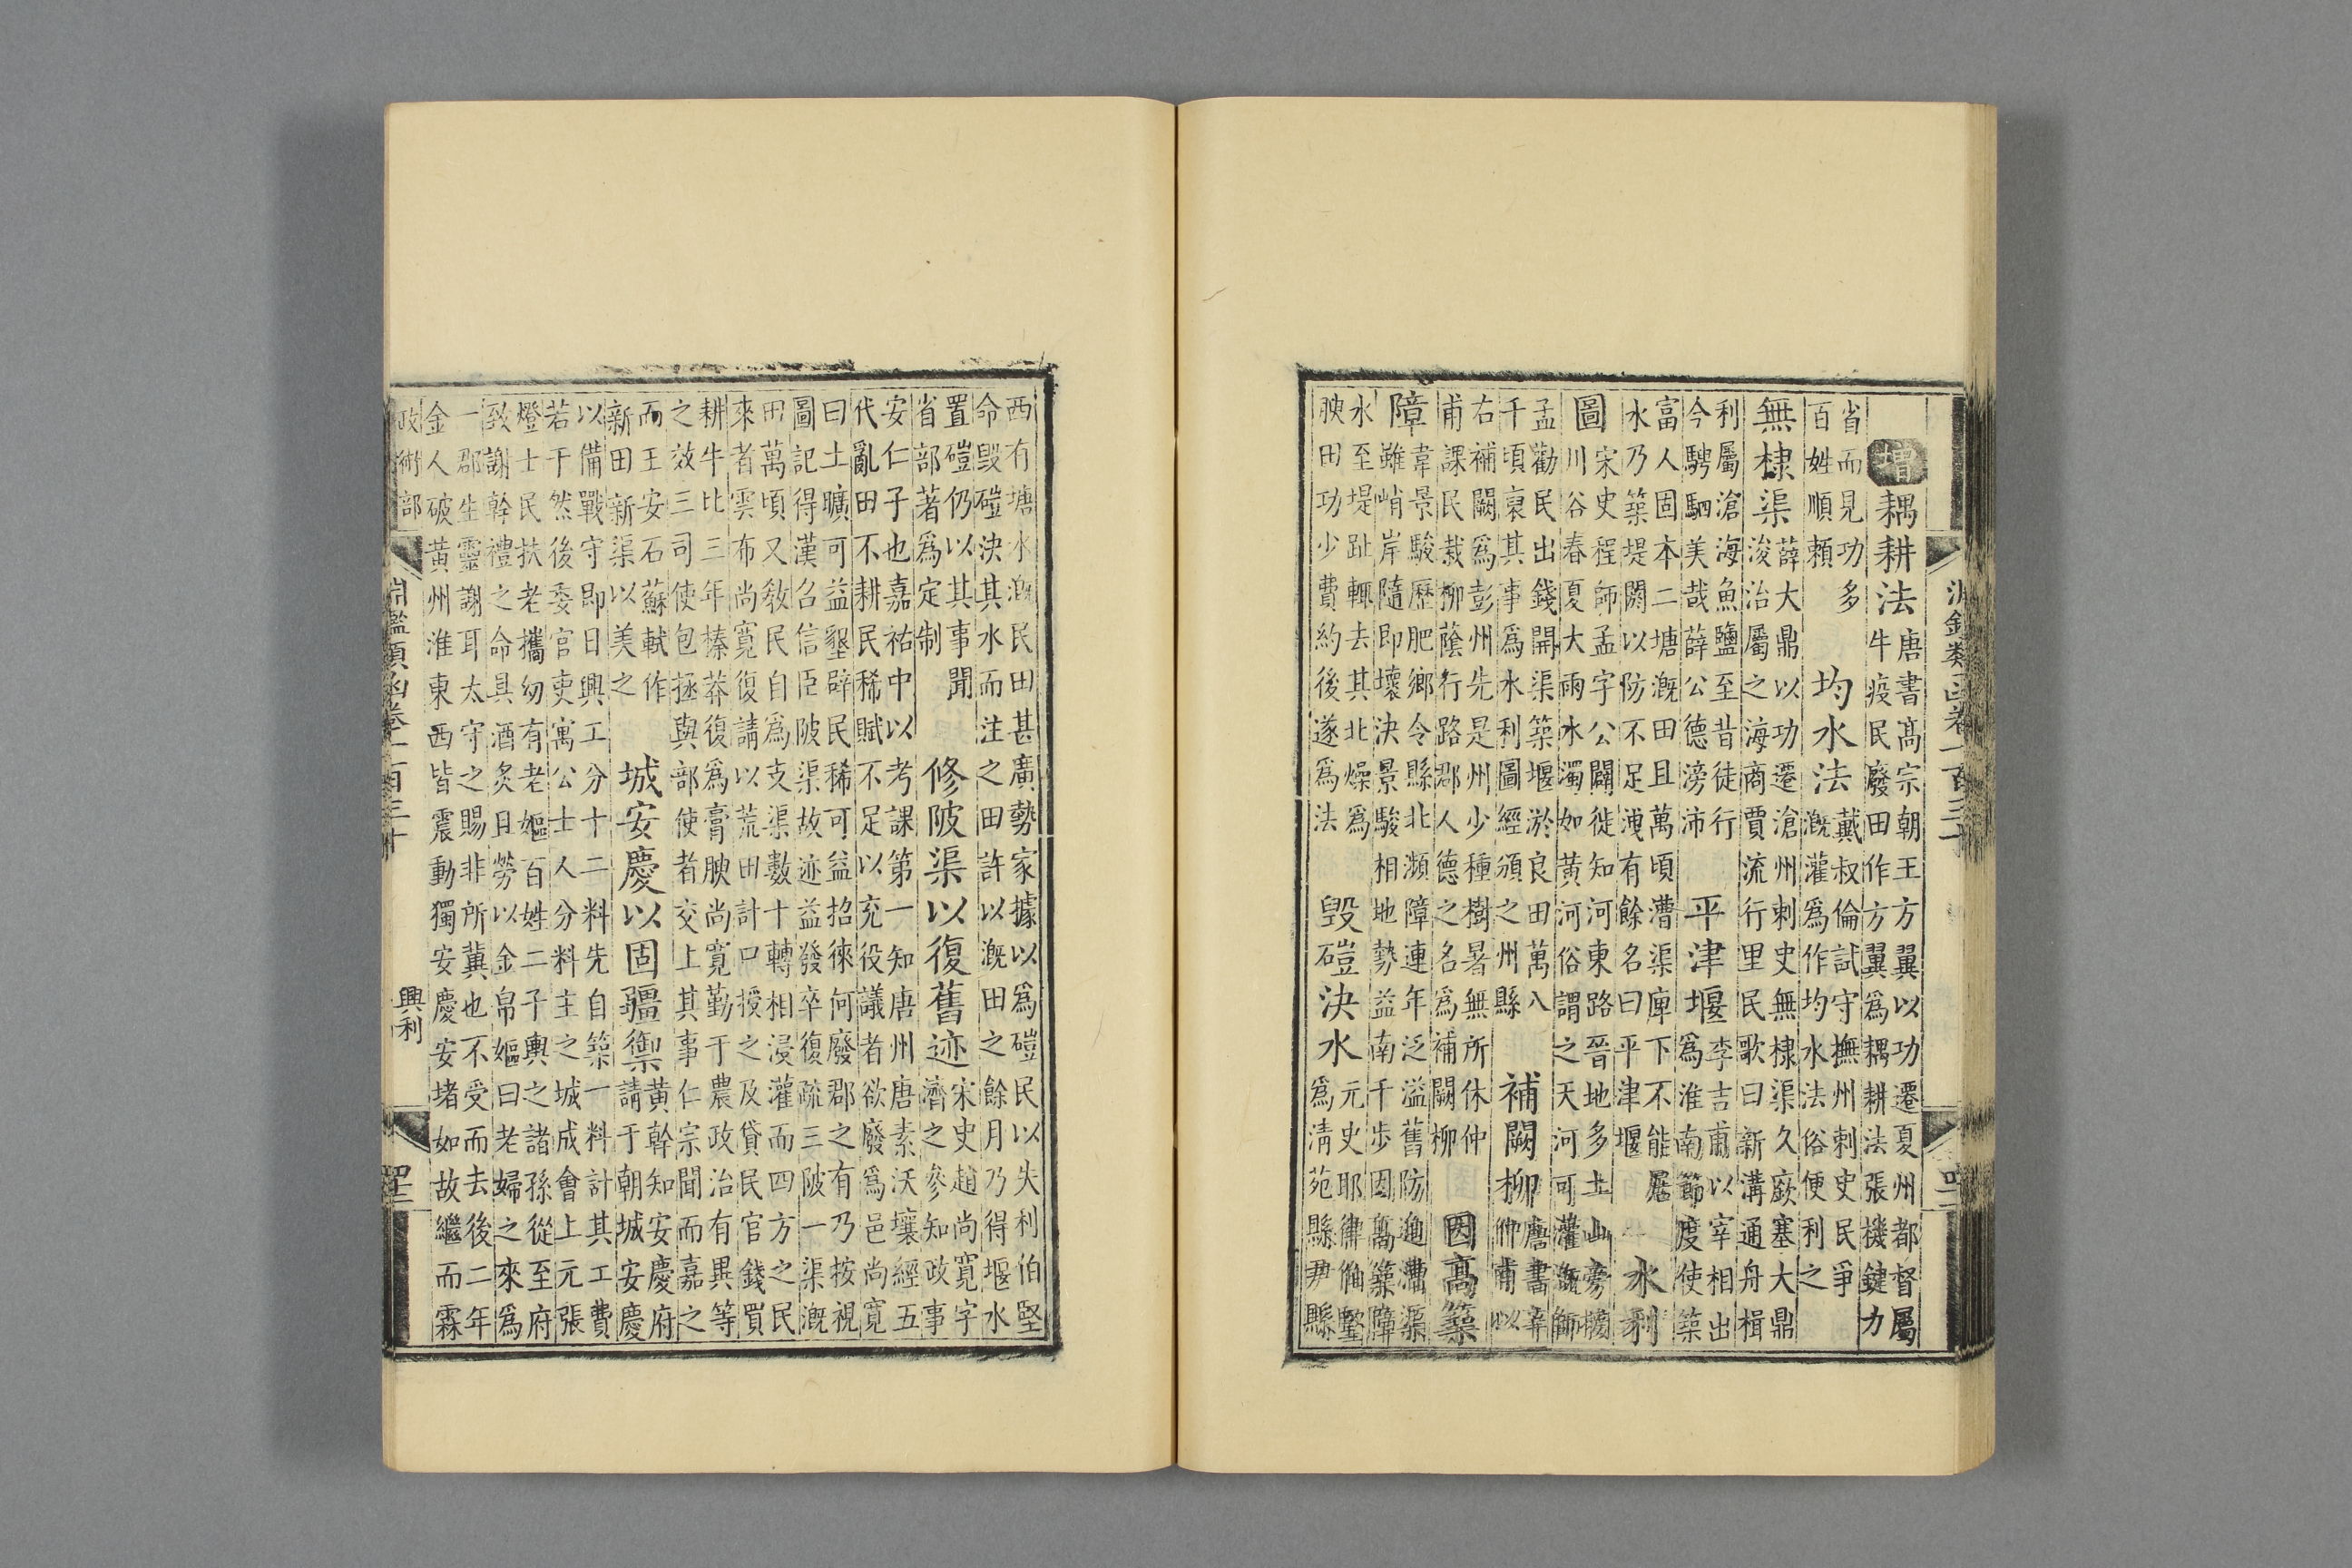 淵鑑類函卷一百三十
增耦耕法
唐書髙宗朝王方翼以功遷夏州都督屬
牛疫民廢田作方翼爲耦耕法張機鍵力
省而見功多
百姓順頼
均水法
戴叔倫試守撫州刺史民爭
漑灌爲作均水法俗便利之
無棣渠
薛大鼎以功遷滄州刺史無棣渠久廞塞大鼎
浚治屬之海商賈流行里民歌曰新溝通舟楫
利屬滄海魚鹽至昔徒行
今騁駟美哉薛公德滂沛
平津堰
李吉甫以宰相出
爲淮南節度使築
富人固本二塘漑田且萬頃漕渠庳下不能居
水乃築堤閼以防不足洩有餘名曰平津堰
水利
圖
宋史程師孟字公闢徙知河東路晉地多土山旁接
川谷春夏大雨水濁如黃河俗謂之天河可灌漑師
孟勸民出錢開渠築堰淤良田萬八
千頃裒其事爲水利圖經頒之州縣
補闕柳
唐書辛
仲甫以
右補闕爲彭州先是州少種樹暑無所休仲
甫課民栽柳蔭行路郡人德之名爲補闕柳
因髙築
障
韋景駿歷肥鄉令縣北瀕障連年泛溢舊防迫漕渠
雖峭岸隨即壞決景駿相地勢益南千步因髙築障
水至堤趾輒去其北燥爲
腴田功少費約後遂爲法
毁磑決水
元史耶律伯堅
爲淸苑縣尹縣
西有塘水漑民田甚廣勢家據以爲磑民以失利伯堅
命毁磑決其水而注之田許以漑田之餘月乃得堰水
置磑仍以其事聞
省部著爲定制
修陂渠以復舊迹
宋史趙尚寛字
濟之參知政事
安仁子也嘉祐中以考課第一知唐州唐素沃壤經五
代亂田不耕民稀賦不足以充役議者欲廢爲邑尚寛
曰土曠可益墾辟民稀可益招徠何廢郡之有乃按視
圖記得漢召信臣陂渠故迹益發卒復疏三陂一渠漑
田萬頃又敎民自爲支渠數十轉相浸灌而四方之民
來者雲布尚寛復請以荒田計口授之及貸民官錢買
耕牛比三年榛莽復爲膏腴尚寛勤于農政治有異等
之效三司使包拯與部使者交上其事仁宗聞而嘉之
而王安石蘇軾作
新田新渠以美之
城安慶以固疆禦
黃幹知安慶府
請于朝城安慶
以備戰守即日興工分十二料先自築一料計其工費
若干然後委官吏寓公士人分料主之城成會上元張
燈士民扶老攜幼有老嫗百姓二子輿之諸孫從至府
致謝幹禮之命具酒炙且勞以金帛嫗曰老婦之來爲
一郡生靈謝耳太守之賜非所冀也不受而去後二年
金人破黃州淮東西皆震動獨安慶安堵如故繼而霖
政術部
淵鑑類函卷一百三十
興利